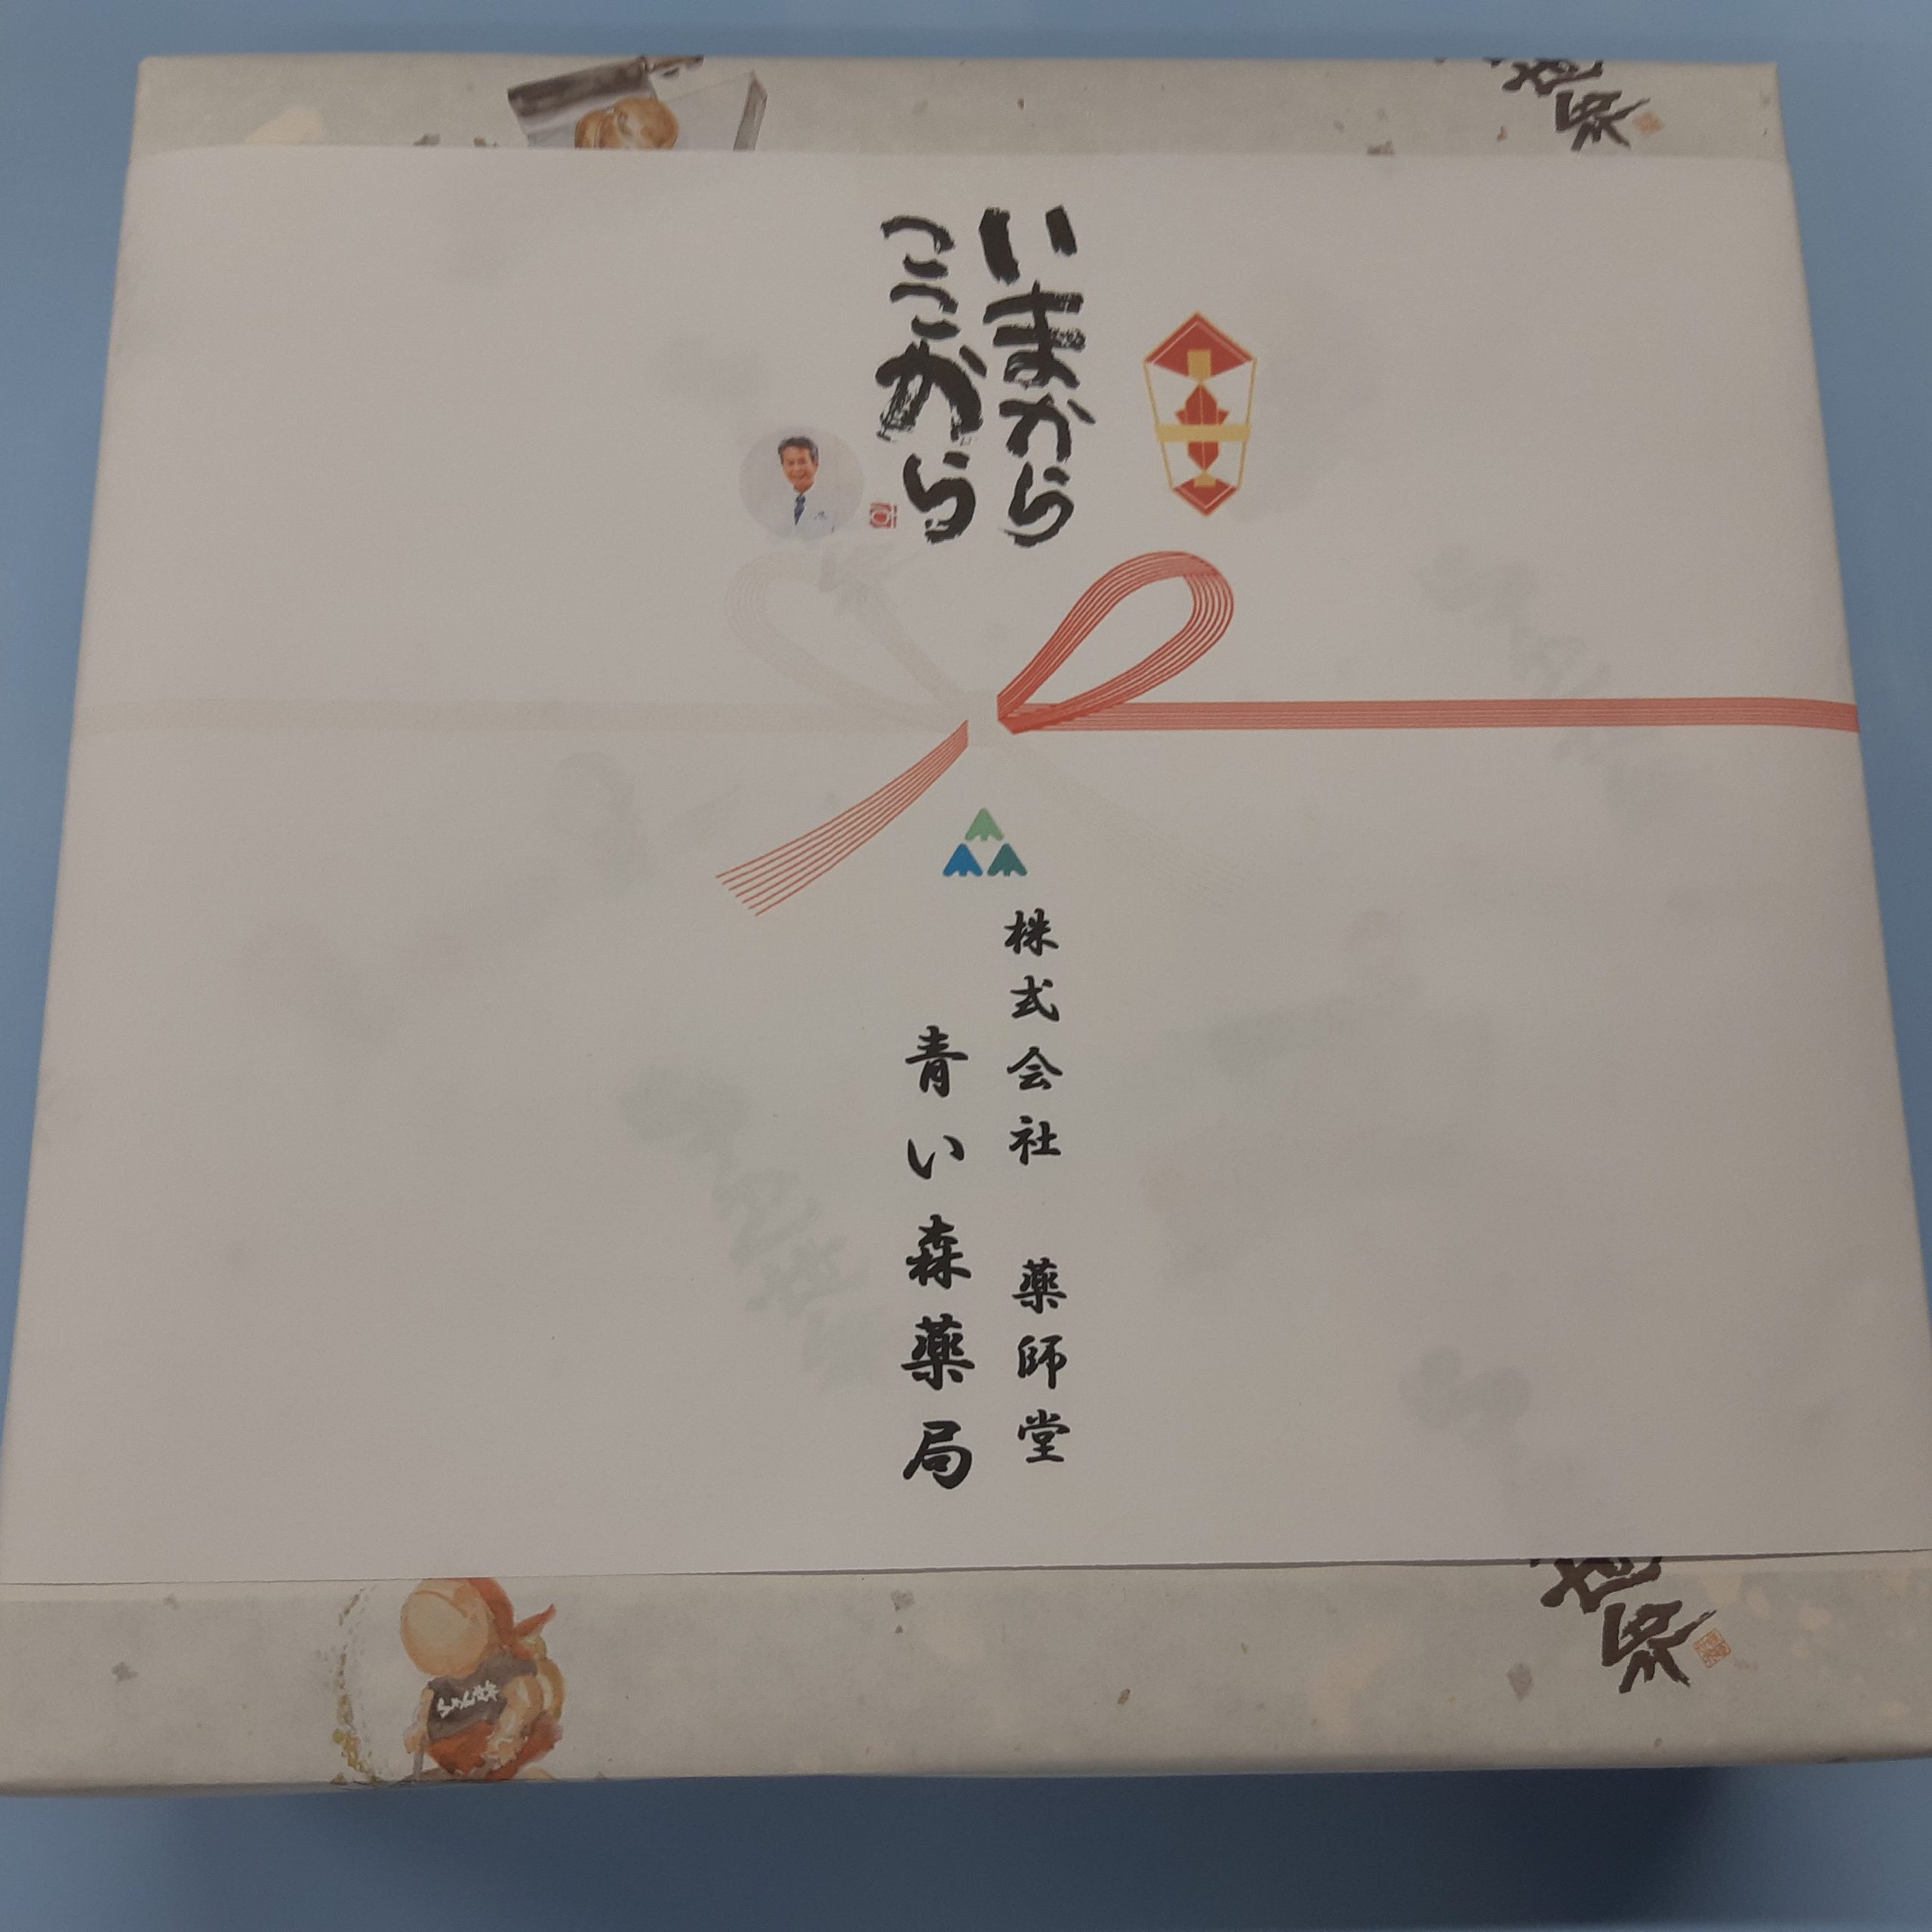 いまから
ここから
株式会社 薬師堂
青い森薬局